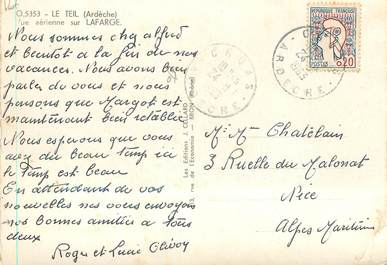 O.5353 - LE TEIL (Ardèche)
Vue aérienne sur LAFARGE.
Nous sommes chez Alfred
et bientôt à la fin de nos
vacances. Nous avons bien
parlé de vous et nous
pensons que Margot est
maintenant bien rétablie.
Nous espérons que vous
avez du beau temps ici
le temps est beau
En attendant de vos
nouvelles nous vous envoyons
nos bonnes amitiés à tous
deux
Roger et Lucie
Les Editions J. CELLARD
rue de l'Economie - BRON (Rhône)
REPUBLIQUE FRANÇAISE
POSTES
0,20
ARDECHE
ARDECHE
M. Mme Chatelain
3 Ruelle du Malonat
Nice
Alpes Maritimes